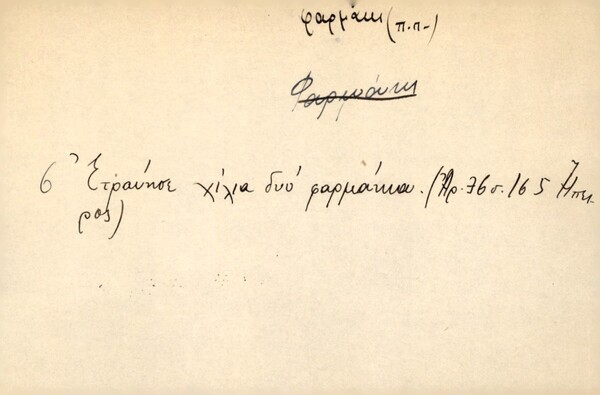 φαρμάκι (π.π-)
Φαρμάκι
6 Ἐτράνησε χίλια δυό φαρμάκια. (Ἀρ. 76 σ. 165 Ἤπει
ρος)